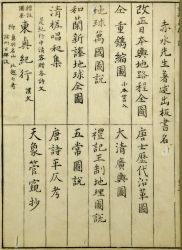 赤水先生著定出板書名
改正日本輿地路程全圖 唐土歷代沿革圖
仝 重鐫縮圖 大清廣輿圖
地球萬國圖說 禮記王制地理圖說
和蘭新譯地球全圖 五常圖說
清槎唱和集 唐詩平仄考
東奥紀行 漢文 天象管窺抄